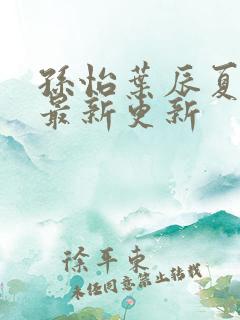 孫怡葉辰夏
最新更新
徐平東
未经同意禁止转载